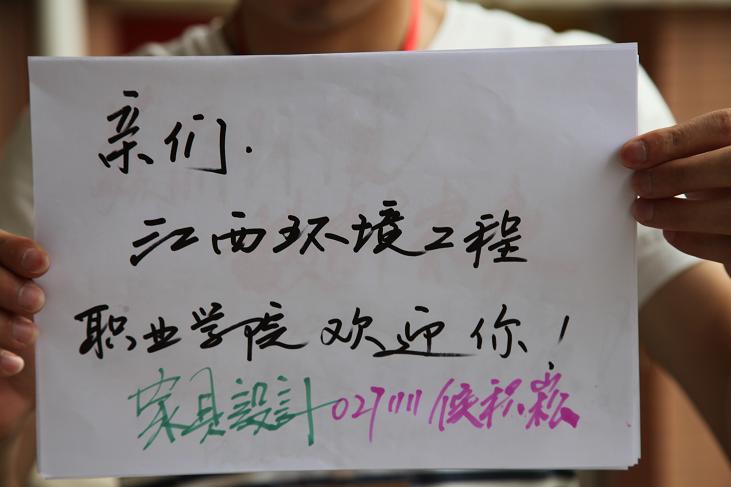 亲们.
江西环境工程
职业学院欢迎你!
家具設計 021111 侯积崧